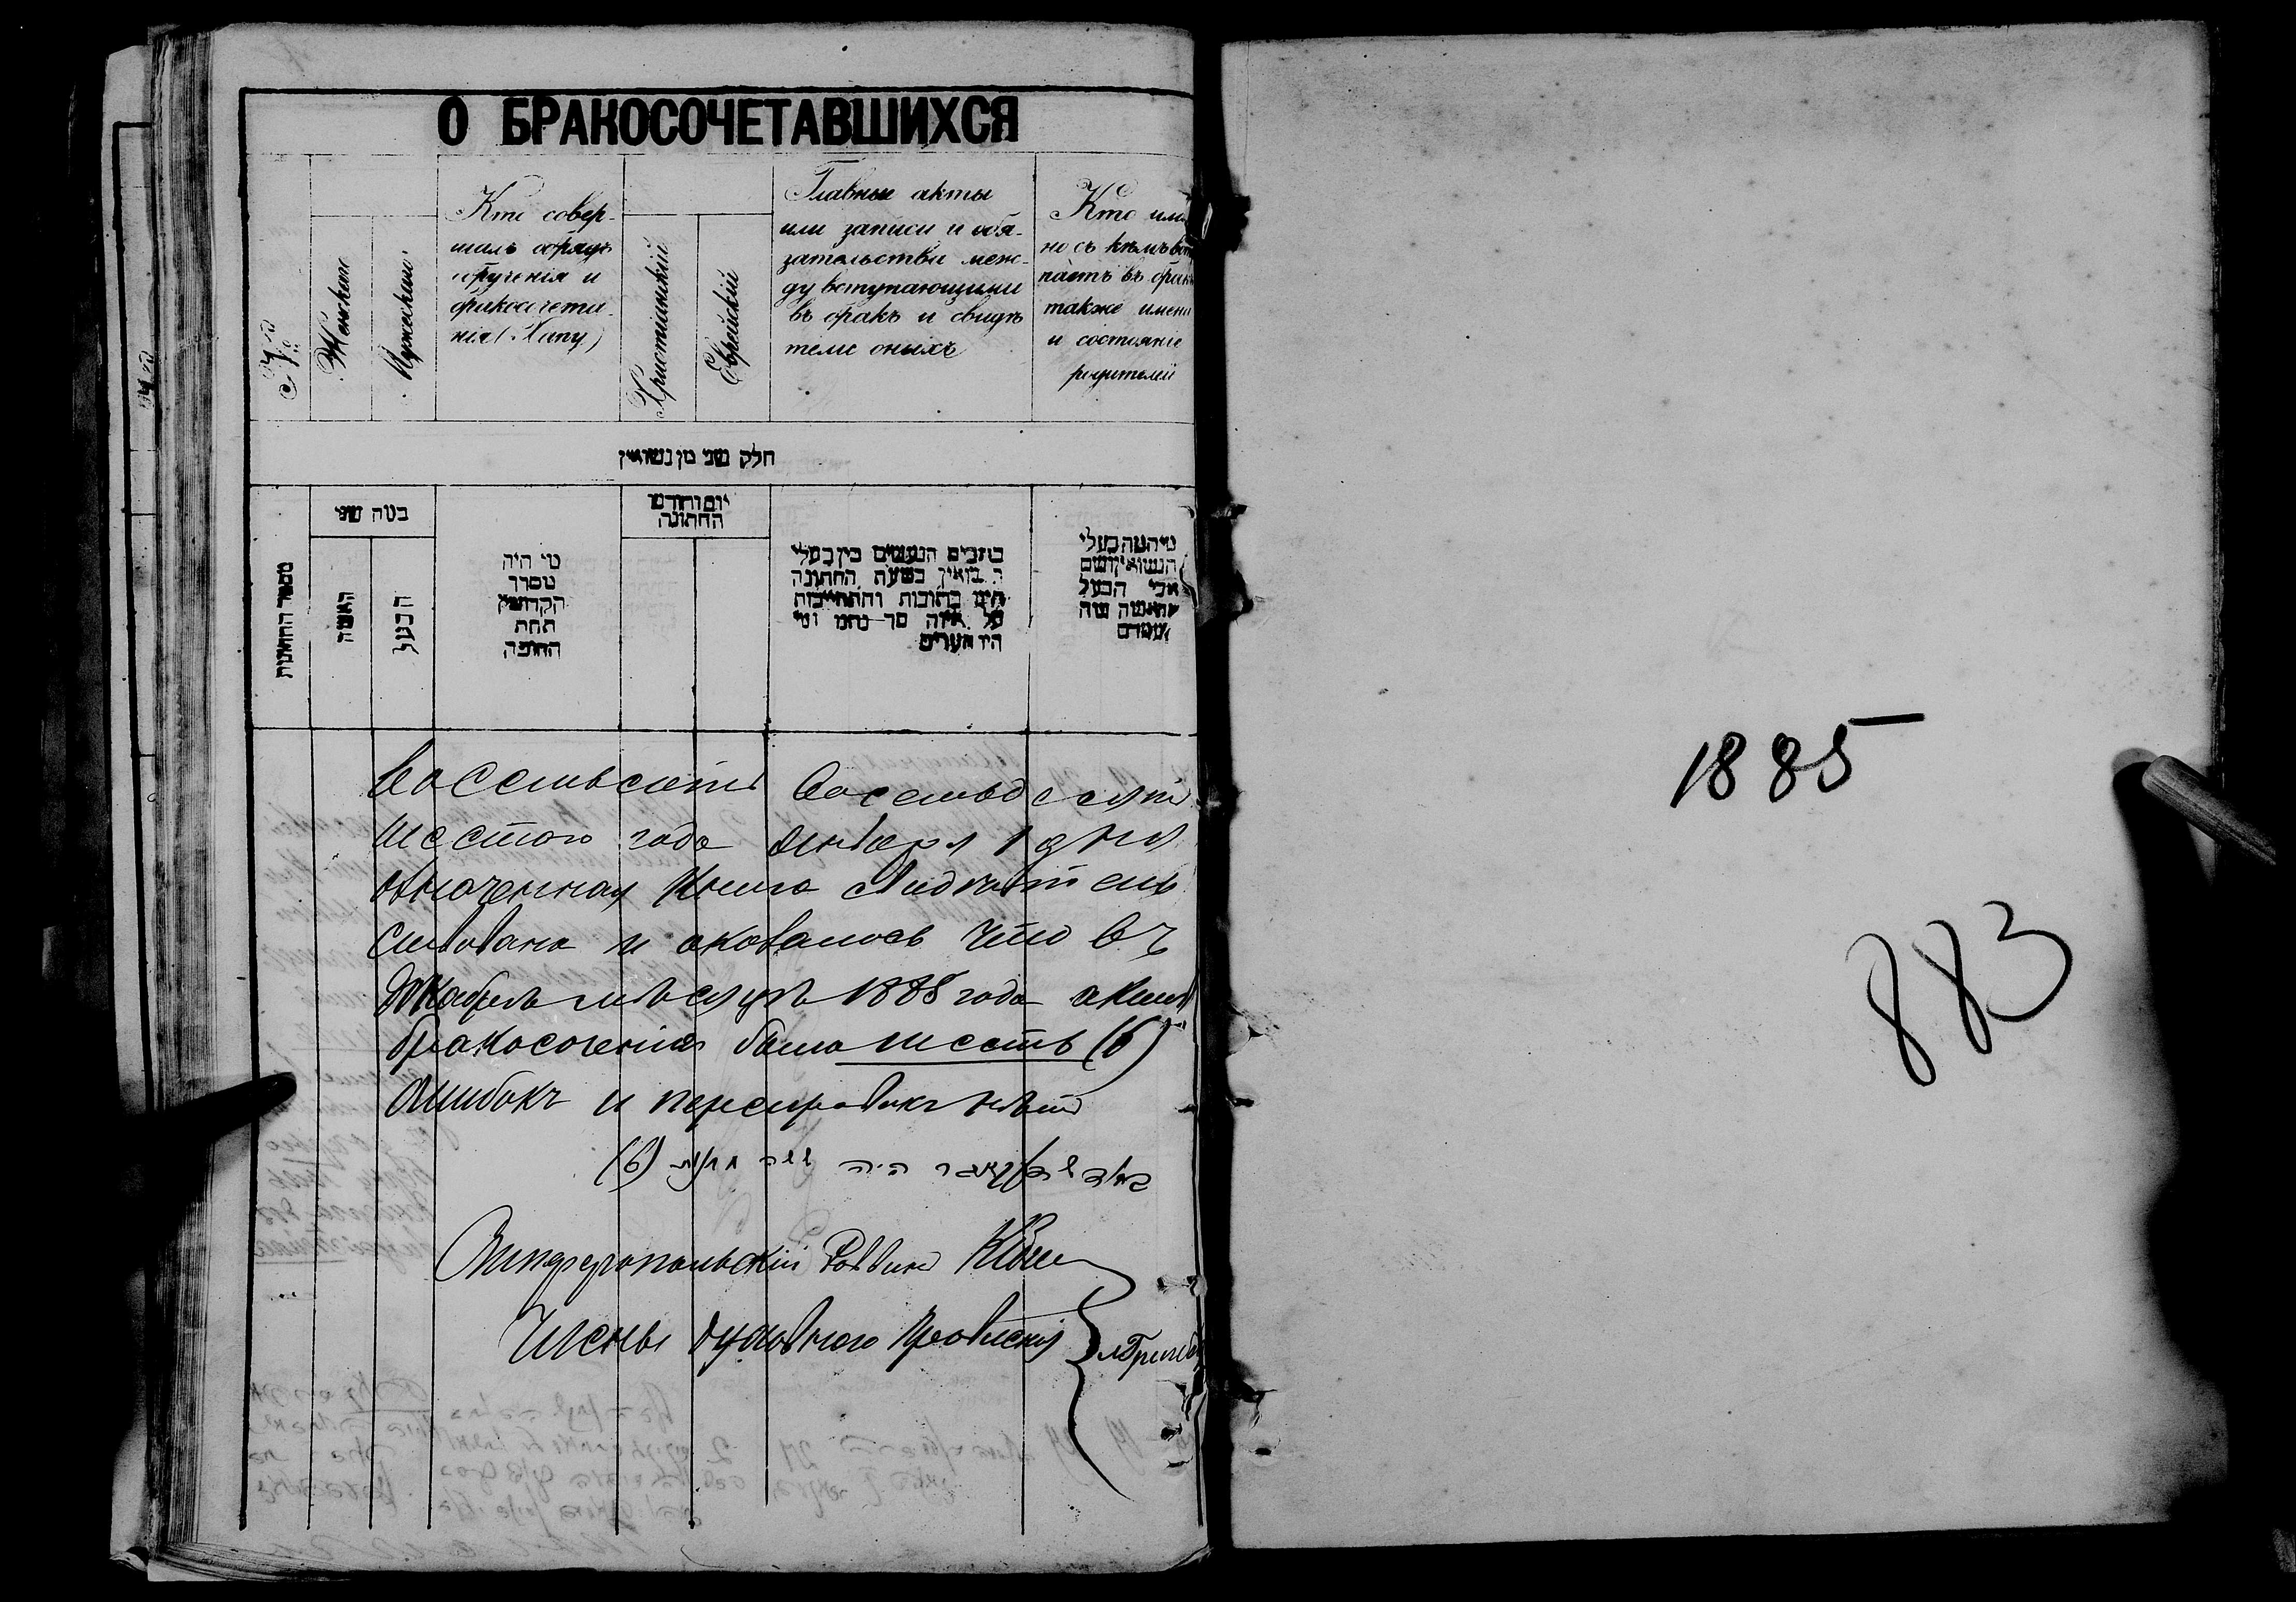 О БРАКОСОЧЕТАВШИХСЯ
№
Женскаго
Мужескаго
Кто совер-
шалъ обрядъ
обрученія и
бракосочета-
нія (Хапу)
Христіанскій
Еврейскій
Главные акты
или записи и обя-
зательства меж-
ду вступающими
въ бракъ и свидѣ
тели оныхъ
Кто имя
но съ кѣмъ всту
паетъ въ бракъ
также имена
и состояніе
родителей
חלק שני מן נשואין
מספר החתונות
כמה שני
האשה
הבעל
מי היה
מסדר
הקדושין
תחת
החופה
יום וחודש
החתונה
כתבים הנעשים בין בעלי
הנשואין בשעת החתונה
היינו כתובות והתחייבות
על איזה סך נכתב ומי
היו העדים
מי המה בעלי
הנשואין ושם
אבי הבעל
והאשה ומה
מעמדם
восемьсотъ восемьдесятъ
шестого года Января 1 дня
означенная книга свидѣтель
ствована и оказалось что въ
Декабрѣ мѣсяцѣ 1885 года актовъ
бракосоченія было шесть (6)
Ошибокъ и переправокъ нѣтъ
היה ששה (6)
Симферопольскій Раввинъ
Члены духовнаго Правленія
1885
883